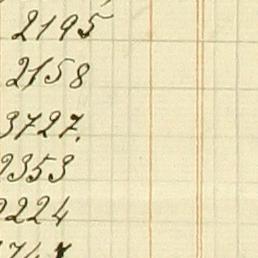 2195
2158
3727.
2353
2224